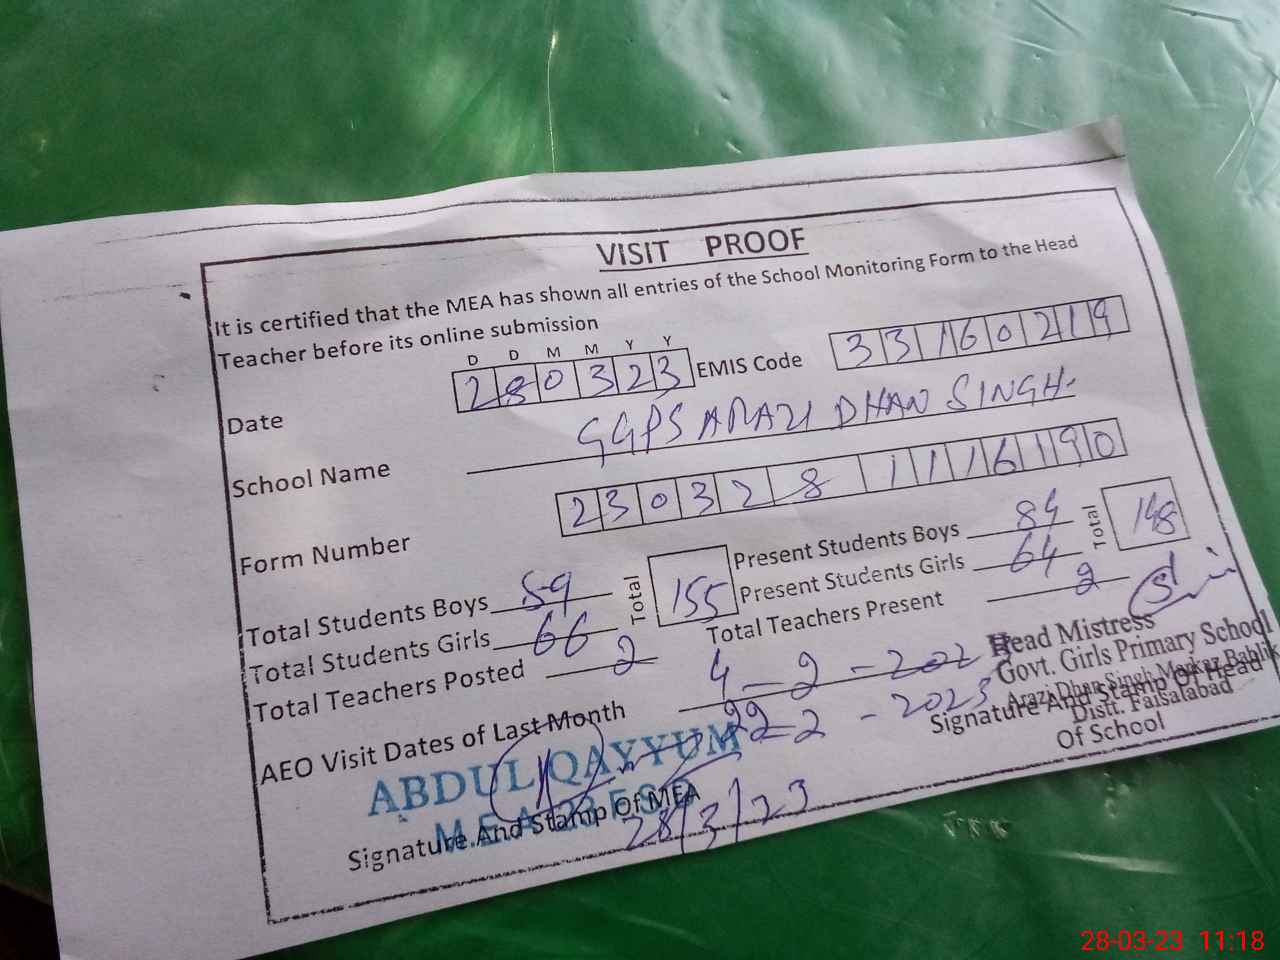 VISIT PROOF
It is certified that the MEA has shown all entries of the School Monitoring Form to the Head
Teacher before its online submission
D D M M Y Y
Date 280323 EMIS Code 33160219
School Name GGPS ARAZI DHAN SINGH
Form Number 2303281116190
Total Students Boys 59 Total 155 Present Students Boys 84 Total 148
Total Students Girls 66 Present Students Girls 64
Total Teachers Posted 2 Total Teachers Present 2
AEO Visit Dates of Last Month 4-2-2023
22-2-2023
Head Mistress
Govt. Girls Primary School
Arazi Dhan Singh Markaz Bahlik
Distt. Faisalabad
Signature And Stamp Of Head
Of School
ABDUL QAYYUM
M.E.A 23 FSD
Signature And Stamp Of MEA
28/3/23
28-03-23 11:18